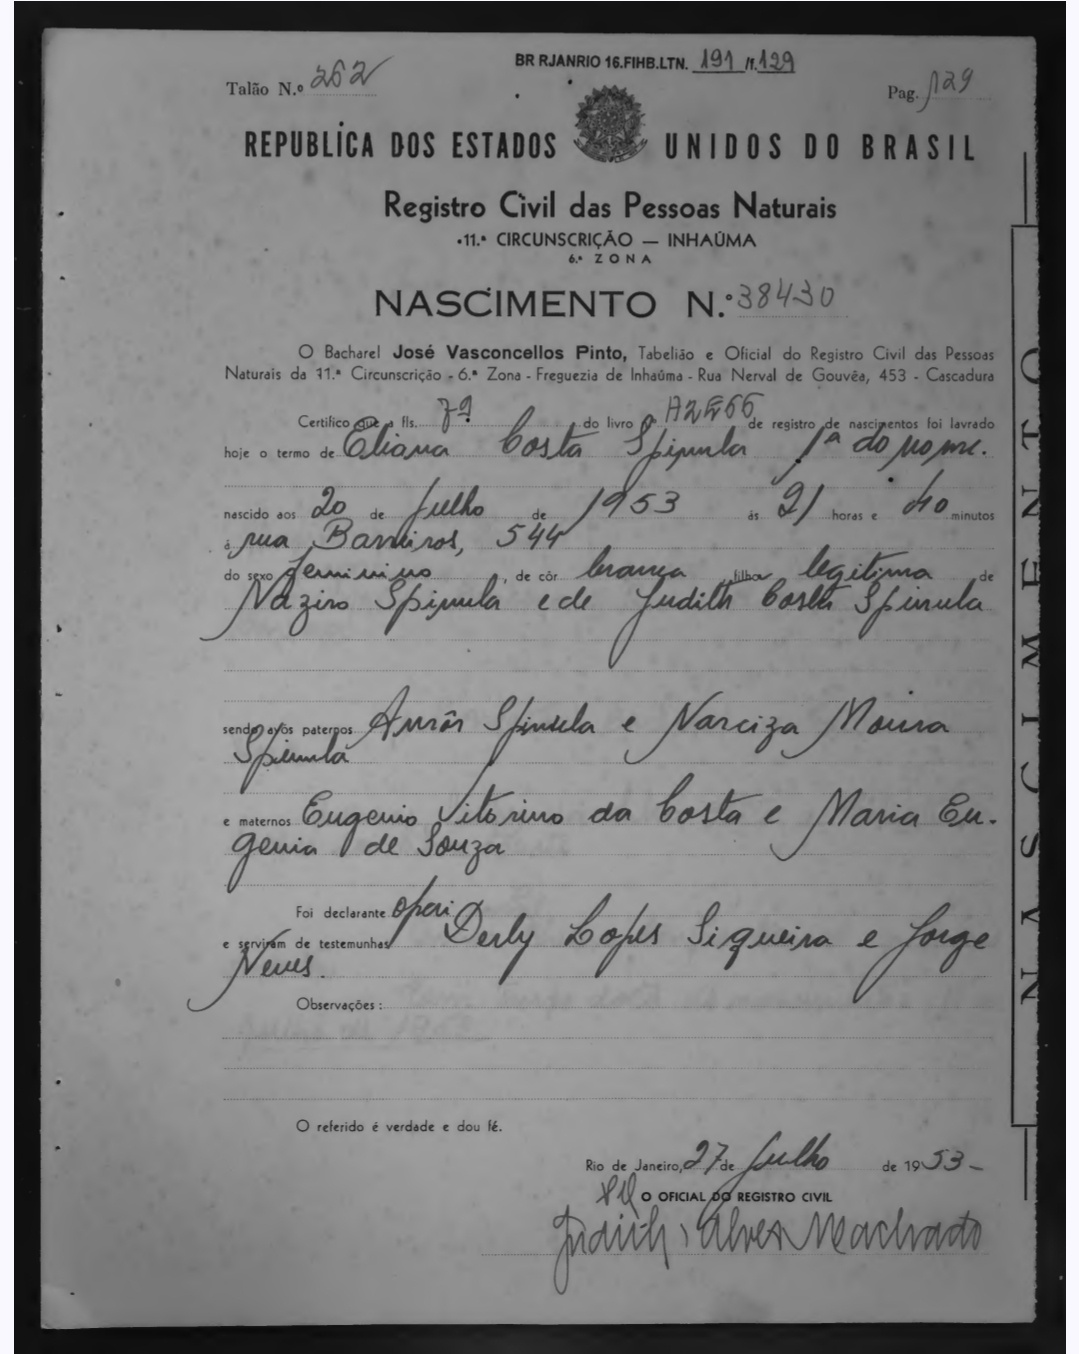 BR RJANRIO 16.FIHB.LTN. 191 /f. 129
Talão N.º 262
Pag. 129
REPUBLICA DOS ESTADOS UNIDOS DO BRASIL
Registro Civil das Pessoas Naturais
11.ª CIRCUNSCRIÇÃO — INHAÚMA
6.ª ZONA
NASCIMENTO N.º 38430
O Bacharel José Vasconcellos Pinto, Tabelião e Oficial do Registro Civil das Pessoas
Naturais da 11.ª Circunscrição - 6.ª Zona - Freguezia de Inhaúma - Rua Nerval de Gouvêa, 453 - Cascadura
Certifico que a fls. 79 do livro de registro de nascimentos foi lavrado
hoje o termo de Eliana Costa Spinula 1ª do nome.
nascido aos 20 de Julho de 1953 ás 21 horas e 40 minutos
á rua Barreiros, 544
do sexo feminino, de côr branca filha legitima de
Naziro Spinula e de Judith Costa Spinula
sendo avós paternos Spinula e Narciza Moura
Spinula
e maternos Eugenio Vitorino da Costa e Maria Eu-
genia de Souza
Foi declarante o pai
e serviram de testemunhas Derly Lopes Siqueira e Jorge
Neves.
Observações:
O referido é verdade e dou fé.
Rio de Janeiro, 27 de Julho de 1953-
O OFICIAL DO REGISTRO CIVIL
Judith Alves Machado
NASCIMENTO